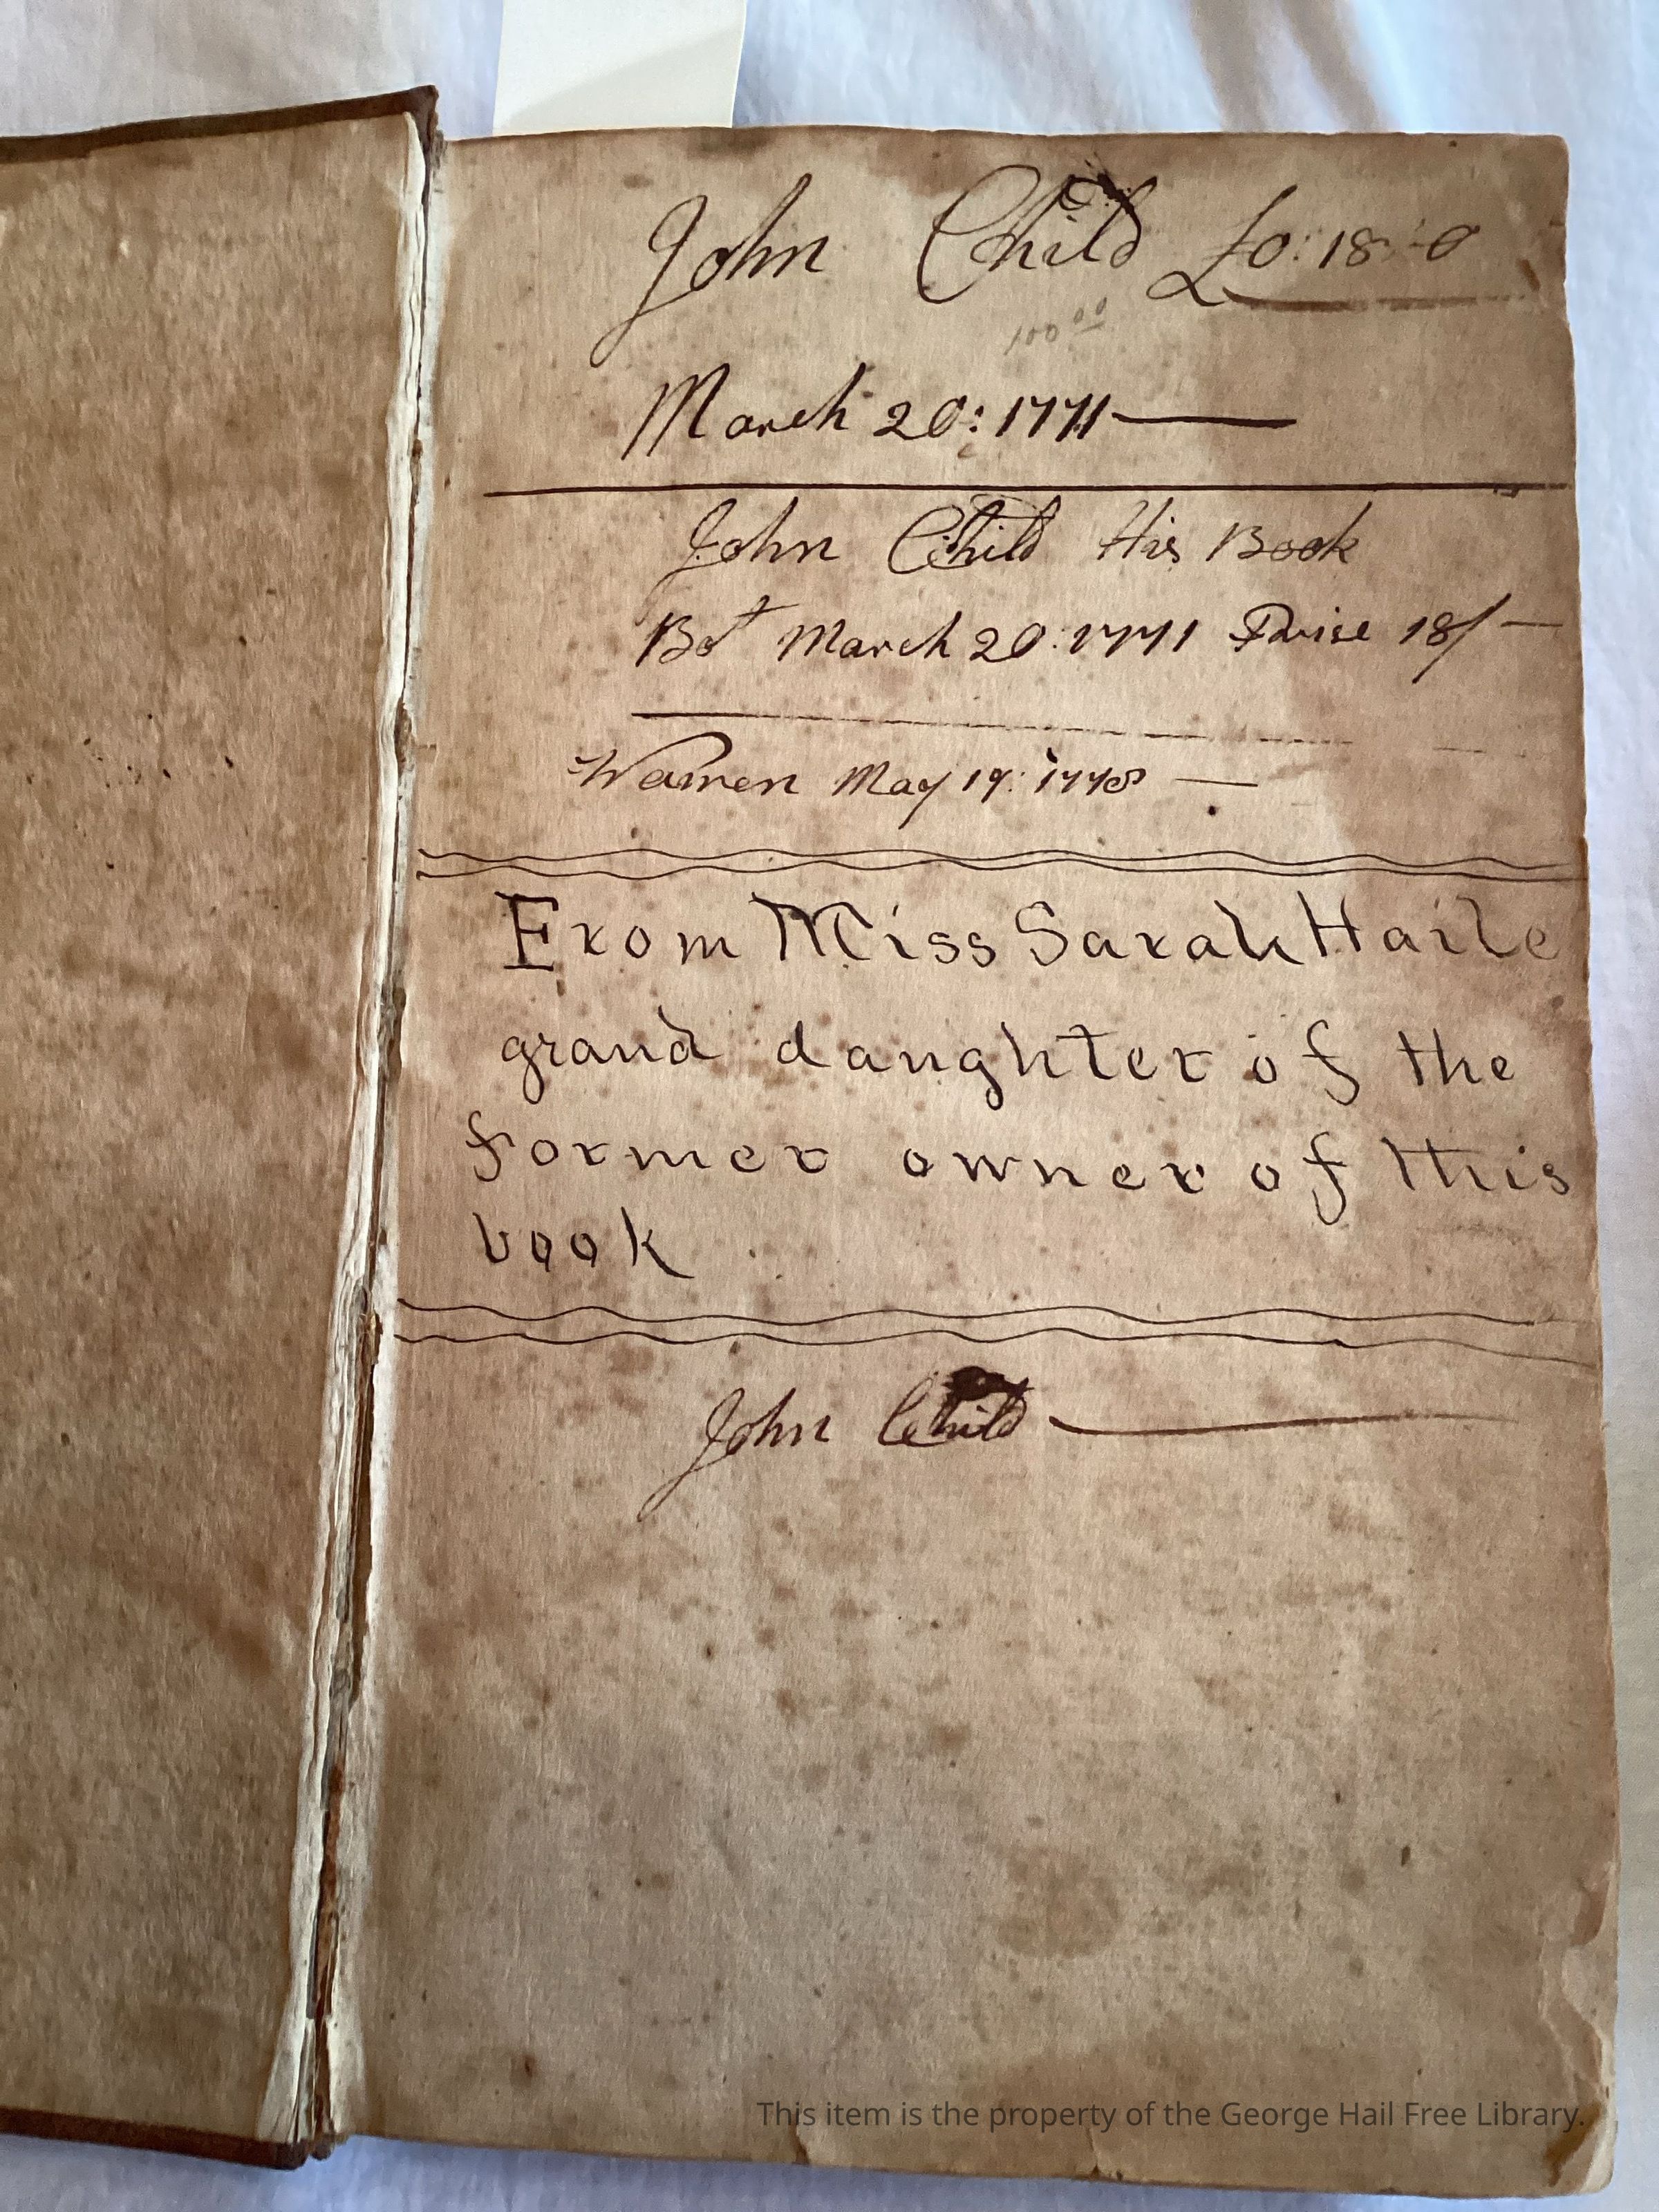 John Child £0:18:0
100 00
March 20: 1771
John Child His Book
Bot March 20: 1771 Prise 18/
Warren May 19: 1778
From Miss Sarah Haile
grand daughter of the
former owner of this
book
John Child
This item is the property of the George Hail Free Library.